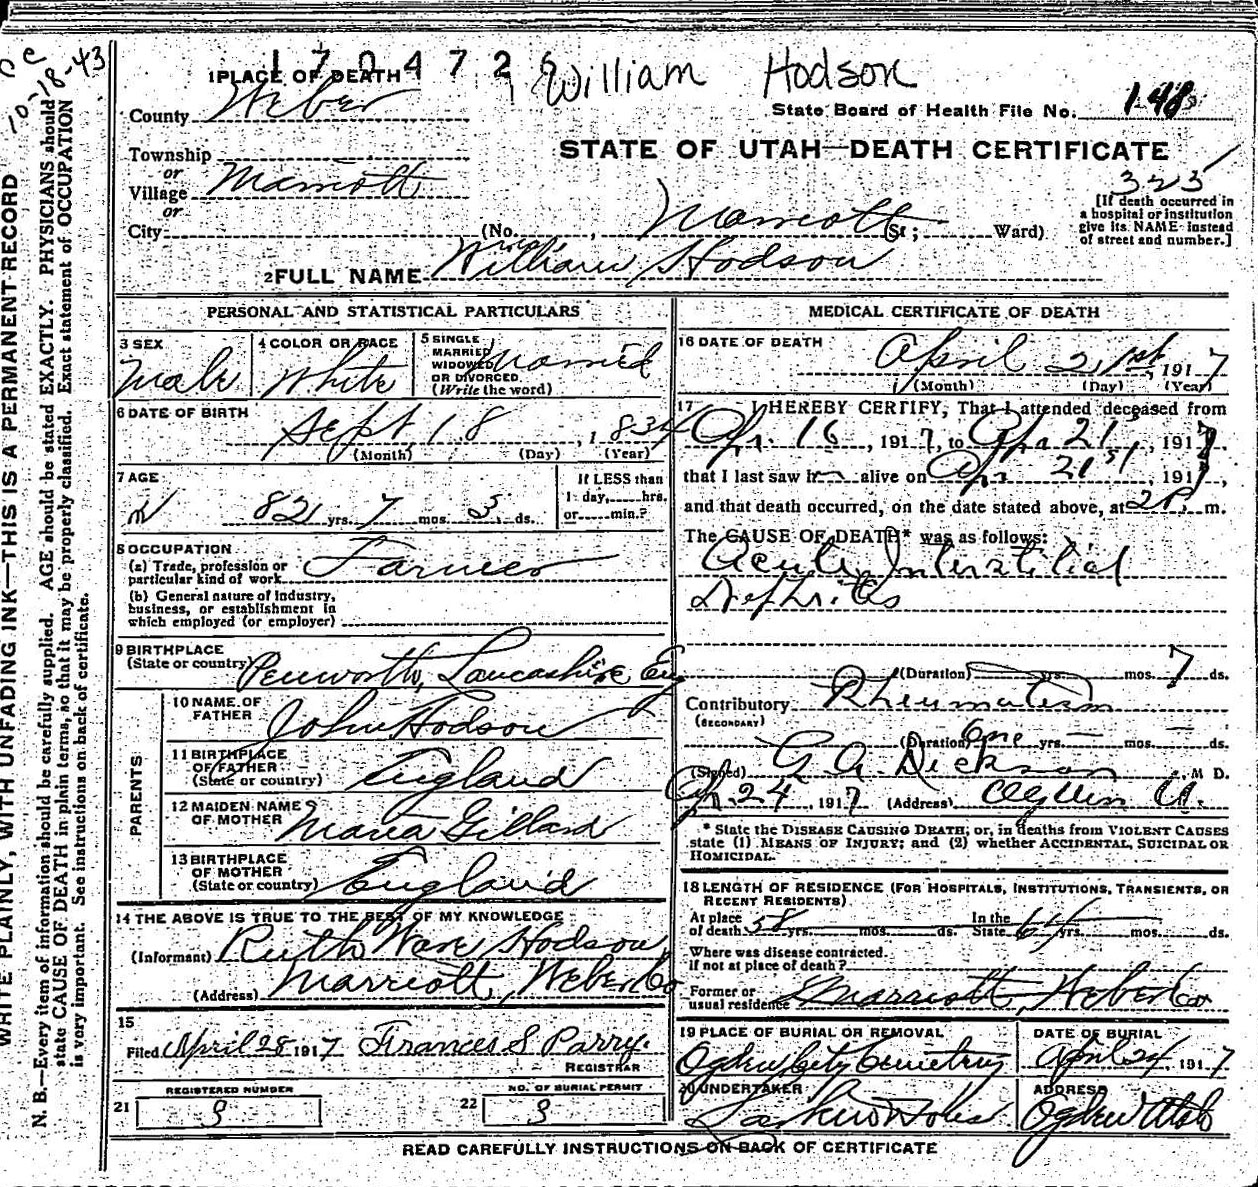 170472
William Hodson
10-18-43
1 PLACE OF DEATH
County Weber
State Board of Health File No. 148
Township
or
Village Marriott
or
City
STATE OF UTAH—DEATH CERTIFICATE
323
[If death occurred in
a hospital or institution
give its NAME instead
of street and number.]
(No. , Marriott St; Ward)
2 FULL NAME William Hodson
PERSONAL AND STATISTICAL PARTICULARS
3 SEX
Male
4 COLOR OR RACE
White
5 SINGLE
MARRIED
WIDOWED
OR DIVORCED
(Write the word)
Married
6 DATE OF BIRTH
Sept. 18, 1834
(Month) (Day) (Year)
7 AGE
82 yrs. 7 mos. 3 ds.
If LESS than
1 day, hrs.
or min.?
8 OCCUPATION
(a) Trade, profession or
particular kind of work Farmer
(b) General nature of industry,
business, or establishment in
which employed (or employer)
9 BIRTHPLACE
(State or country) Penworth, Lancashire Eng
PARENTS
10 NAME OF
FATHER John Hodson
11 BIRTHPLACE
OF FATHER
(State or country) England
12 MAIDEN NAME
OF MOTHER Maria Gillard
13 BIRTHPLACE
OF MOTHER
(State or country) England
14 THE ABOVE IS TRUE TO THE BEST OF MY KNOWLEDGE
(Informant) Ruth Ware Hodson
(Address) Marriott, Weber Co
15
Filed April 28 1917 Frances S Parry.
REGISTRAR
REGISTERED NUMBER
21 3
NO. OF BURIAL PERMIT
22 3
MEDICAL CERTIFICATE OF DEATH
16 DATE OF DEATH
April 21st, 1917
(Month) (Day) (Year)
17 I HEREBY CERTIFY, That I attended deceased from
Apr. 16, 1917, to Apr. 21st, 1917
that I last saw him alive on Apr 21st, 1917,
and that death occurred, on the date stated above, at 2P. m.
The CAUSE OF DEATH* was as follows:
Acute Interstitial
Nephritis
(Duration) yrs. mos. 7 ds.
Contributory Rheumatism
(SECONDARY)
(Duration) One yrs. — mos. — ds.
(Signed) G. A. Dickson, M D.
Apr. 24, 1917 (Address) Ogden U.
* State the DISEASE CAUSING DEATH; or, in deaths from VIOLENT CAUSES
state (1) MEANS OF INJURY; and (2) whether ACCIDENTAL, SUICIDAL OR
HOMICIDAL.
18 LENGTH OF RESIDENCE (FOR HOSPITALS, INSTITUTIONS, TRANSIENTS, OR
RECENT RESIDENTS)
At place
of death 58 yrs. mos. ds. In the
State yrs. mos. ds.
Where was disease contracted.
if not at place of death?
Former or
usual residence Marriott, Weber Co
19 PLACE OF BURIAL OR REMOVAL
Ogden City Cemetery
DATE OF BURIAL
April 24, 1917
20 UNDERTAKER
ADDRESS
Ogden Utah
READ CAREFULLY INSTRUCTIONS ON BACK OF CERTIFICATE
WRITE PLAINLY, WITH UNFADING INK—THIS IS A PERMANENT RECORD
N. B.—Every item of information should be carefully supplied. AGE should be stated EXACTLY. PHYSICIANS should
state CAUSE OF DEATH in plain terms, so that it may be properly classified. Exact statement of OCCUPATION
is very important. See instructions on back of certificate.